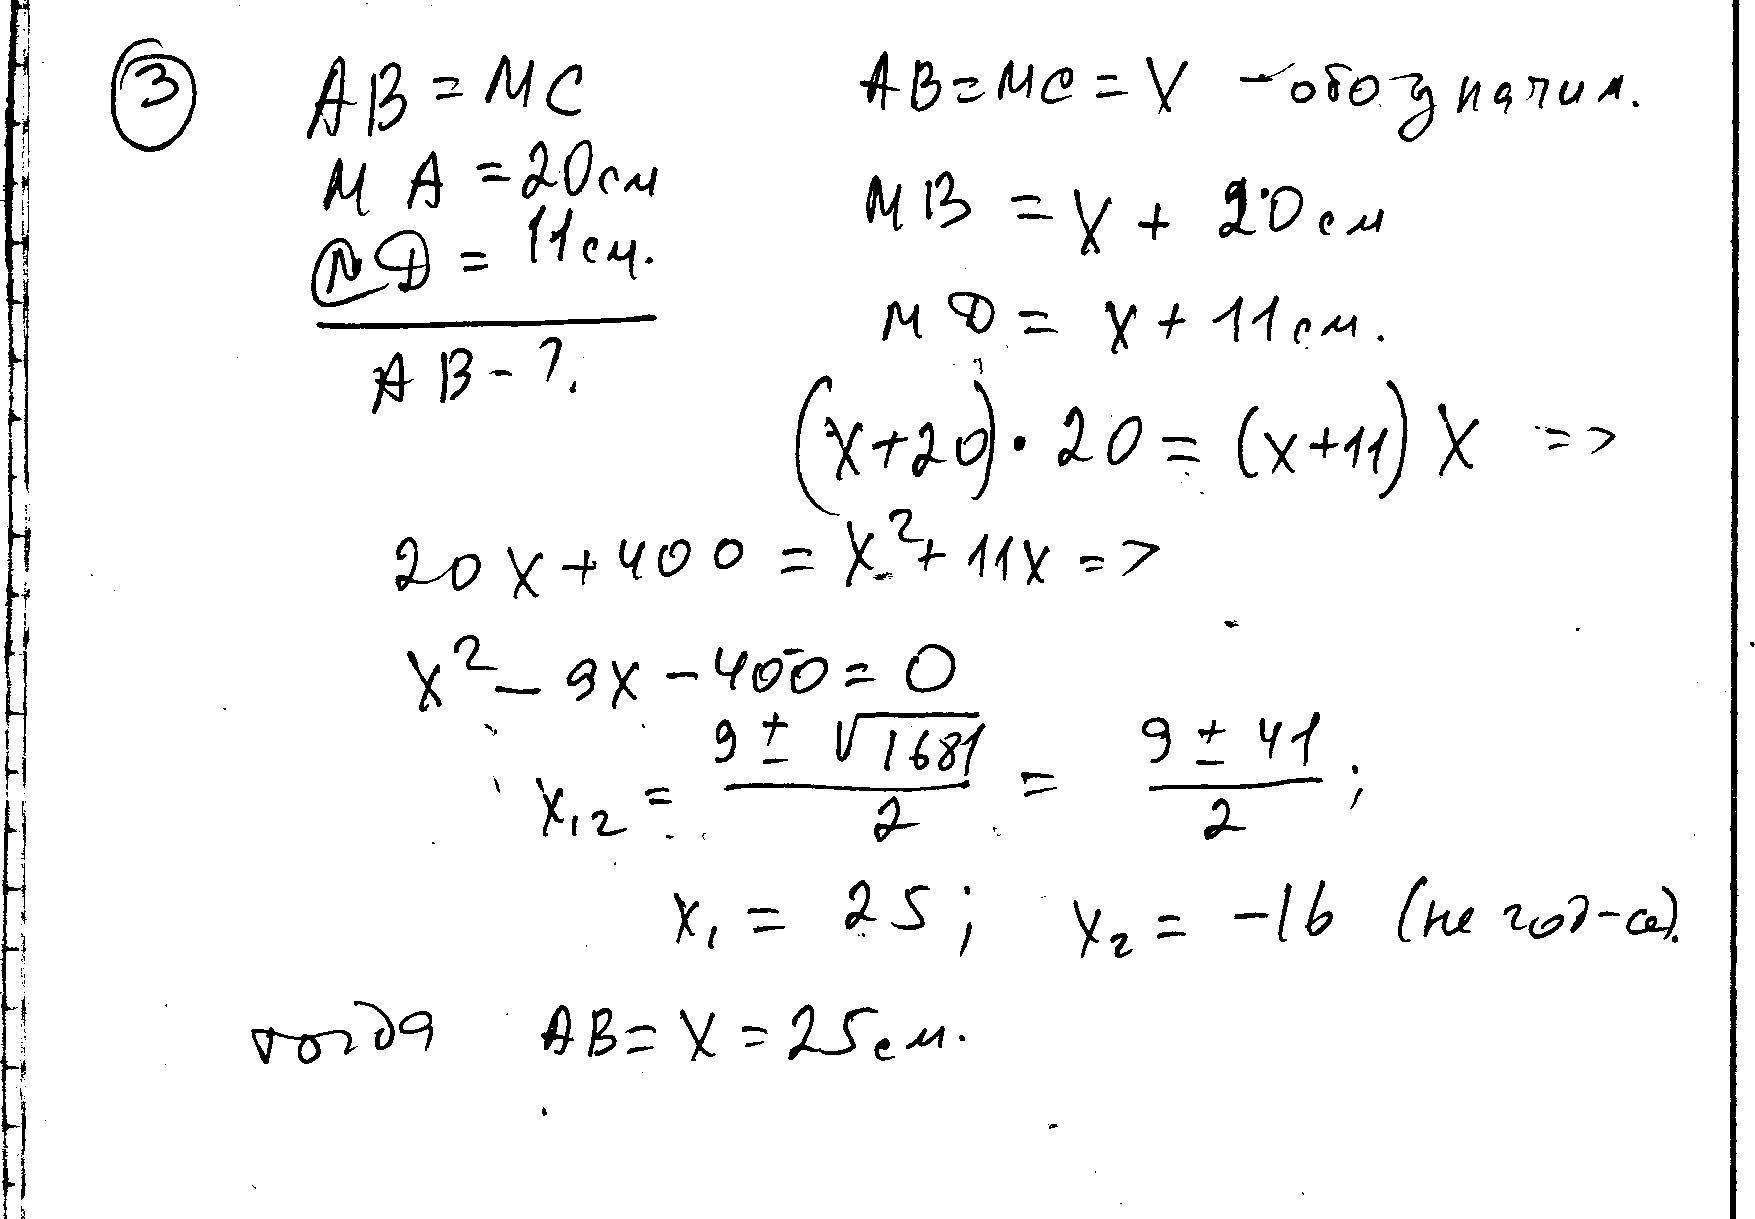 3
AB = MC
MA = 20см
D = 11см.
AB - ?.
AB = MC = X - обозначим.
MB = X + 20см
MD = X + 11см.
(X+20)·20 = (X+11)X =>
20X + 400 = X² + 11X =>
X² - 9X - 400 = 0
X₁₂ = (9 ± √1681)/2 = (9 ± 41)/2 ;
X₁ = 25; X₂ = -16 (не год-ся).
тогда AB = X = 25см.